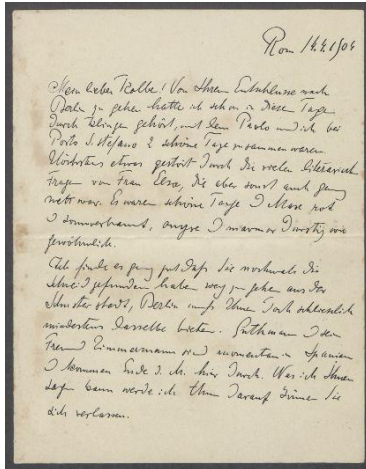 Rom 14.4.1904
Mein lieber Kolbe! Von Ihrem Entschlusse nach
Berlin zu gehen hatte ich schon in diesen Tagen
durch Klinger gehört, mit dem Paolo und ich bei
Porto S. Stefano 2 schöne Tage zusammen waren.
Höchstens etwas gestört durch die vielen literarisch
Fragen von Frau Elsa, die aber sonst auch ganz
nett war. Es waren schöne Tage
gewöhnlich.
Ich finde es ganz gut daß Sie nochmals die
gefunden haben weg zu gehen aus der
Berlin muß Ihnen doch schliesslich
mindestens dasselbe bieten. Guthmann sein
Freund Zimmermann sind momentan in Spanien
kommen Ende d. M. hier durch. Was ich Ihnen
sagen kann werde ich thun darauf können Sie
sich verlassen.